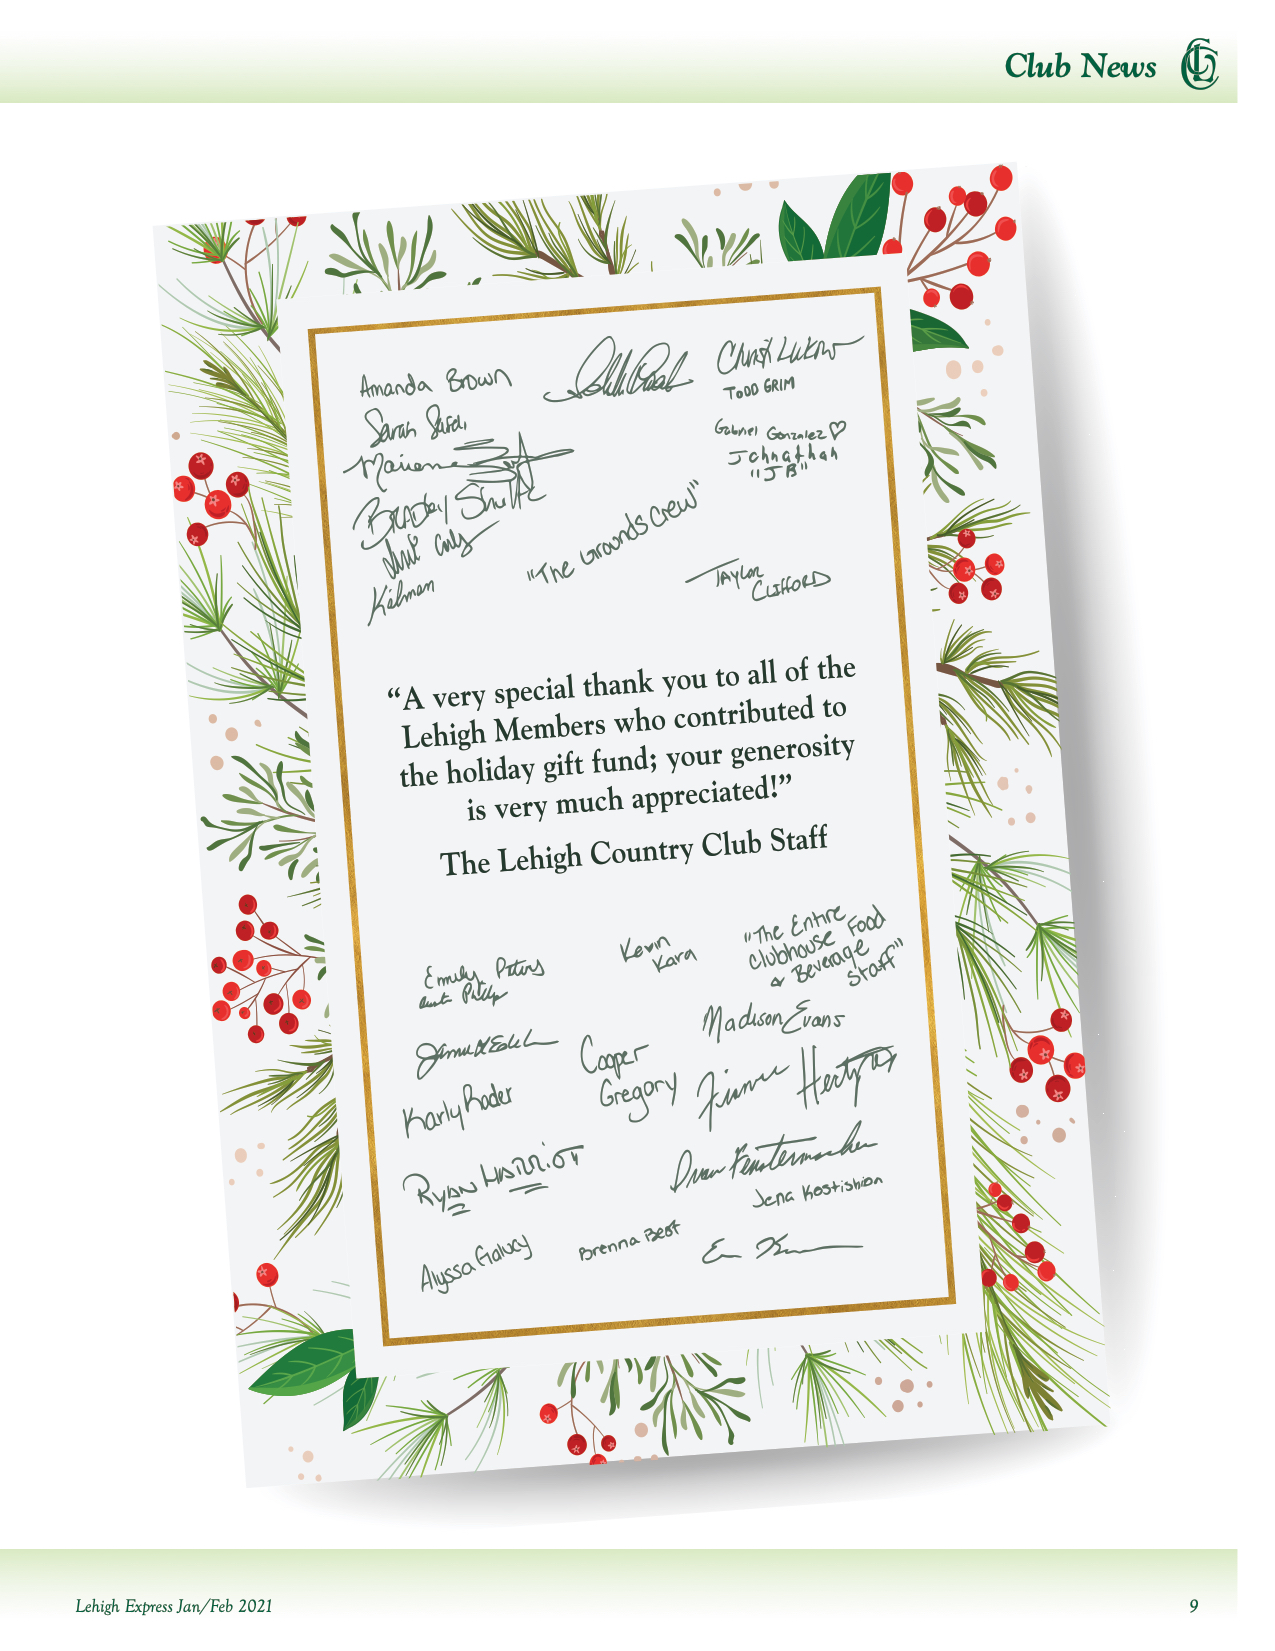 Club News
Amanda Brown
Sarah
Christ Lukow
TODD GRIM
Gabriel Gonzalez
Johnathan
"JB"
Bradley Shultz
Kelman
"The Grounds Crew"
TAYLOR
CLIFFORD
“A very special thank you to all of the
Lehigh Members who contributed to
the holiday gift fund; your generosity
is very much appreciated!”
The Lehigh Country Club Staff
Emily Peters
Kevin
Kara
"The Entire
Clubhouse Food
& Beverage
Staff"
Madison Evans
Cooper
Gregory
Karly Rader
Ryan HARRIOT
Fenstermacher
Jena Kostishion
Alyssa Galucy
Brenna Best
Lehigh Express Jan/Feb 2021
9